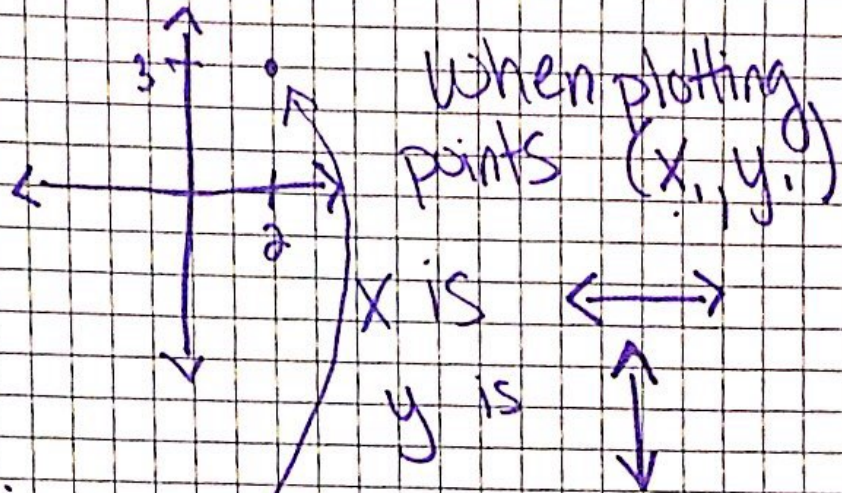 3
When plotting
points (x₁, y₁)
2
x is
y is